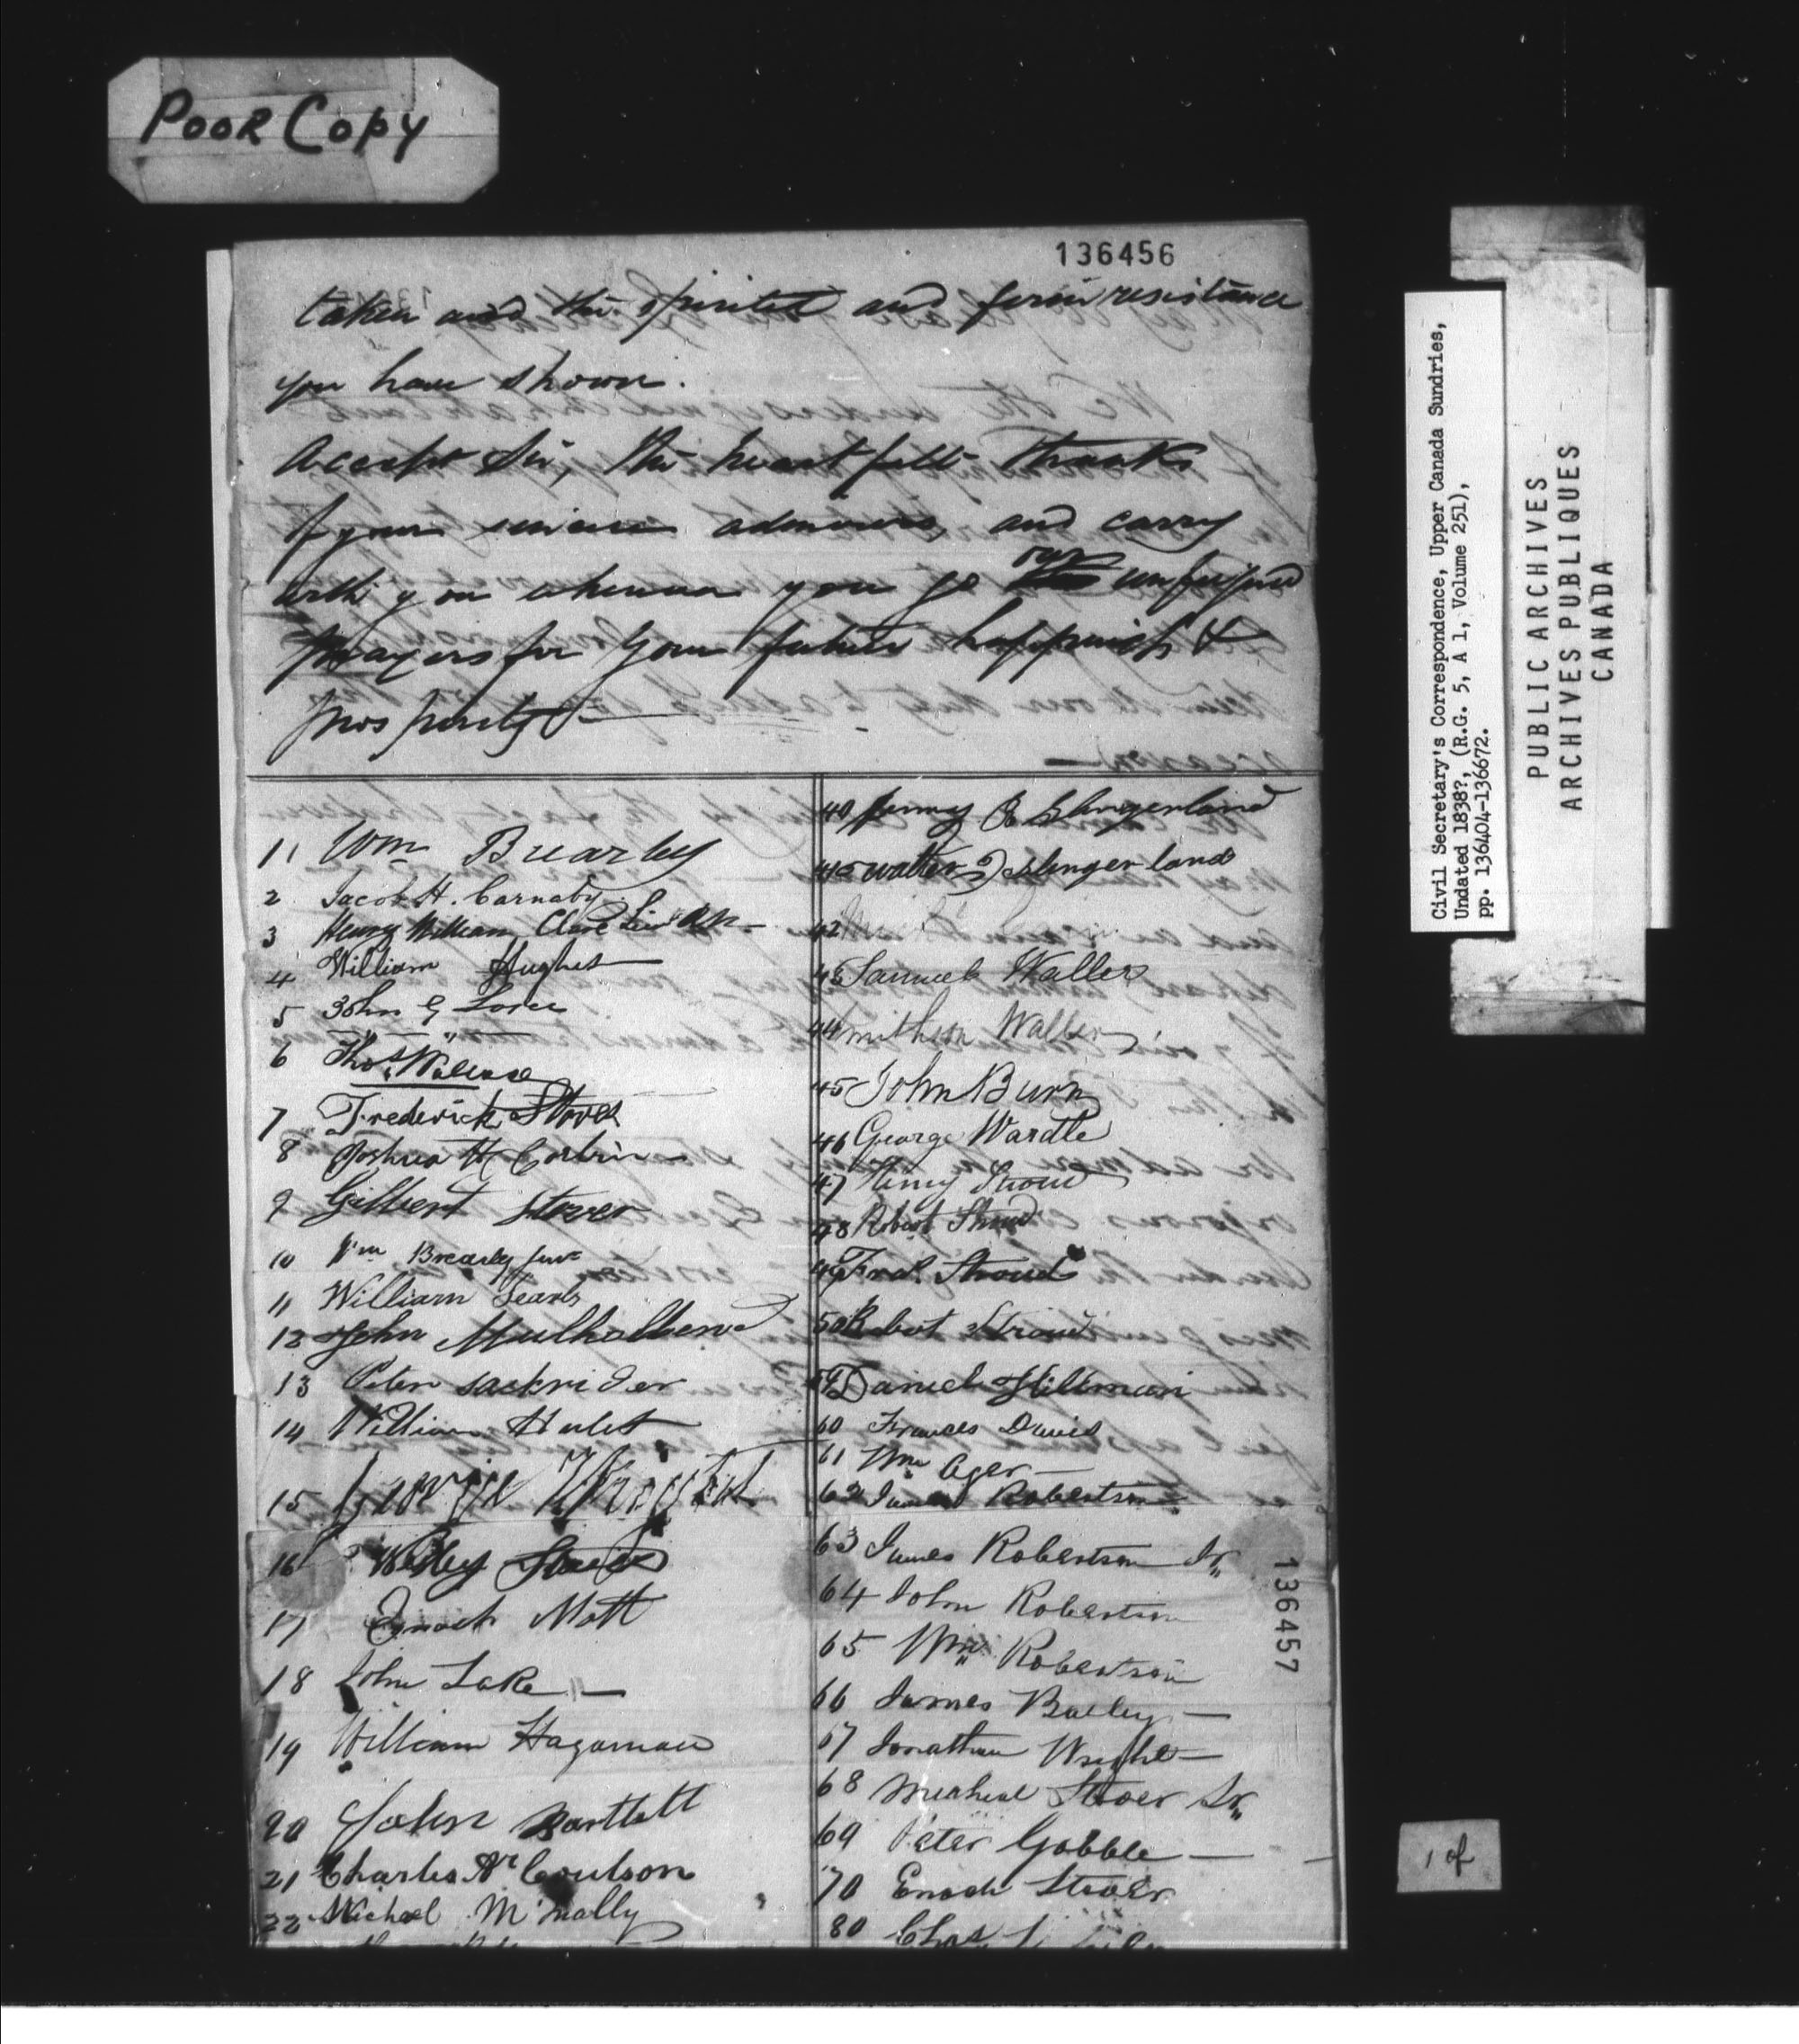 POOR COPY
136456
taken and the spirited and firm resistance
you have shown.
Accept Sir, the heart felt thanks
of your sincere admirers, and carry
with you wherever you go our unfeigned
prayers for your future happiness &
prosperity
1 Wm Brearley
2 Jacob H. Carnaby
3 Henry William Clare
4 William Hughes
5 John G Lorn
6 Thos Wallace
7 Frederick Stover
8 Joshua H Corbin
9 Gilbert Stover
10 Wm Brearly Junr
11 William Searls
12 John Mulholland
13 Peter Sackrider
14 William Hulet
15 George
16 Wesley
17 Enoch Mott
18 John Lake
19 William Hagaman
20 John Bartlett
21 Charles Coulson
22 Michael McNally
40 Slingerland
Walter Slingerland
42
43 Samuel Waller
44 Waller
45 John Burn
46 George Wardle
47 Henry Stroud
48 Robert Stroud
49 Fred. Stroud
50 Robert Stroud
Daniel Hillman
60 Frances Davis
61 Wm Ager
62 James Robertson
63 James Robertson Jr
64 John Robertson
65 Wm Robertson
66 James Bailey
67 Jonathan Wright
68 Micheal Stover Sr
69 Peter Gobble
70 Enoch Stover
80 Chas
136457
Civil Secretary's Correspondence, Upper Canada Sundries,
Undated 1838?, (R.G. 5, A 1, Volume 251),
pp. 136404-136672.
PUBLIC ARCHIVES
ARCHIVES PUBLIQUES
CANADA
1 of